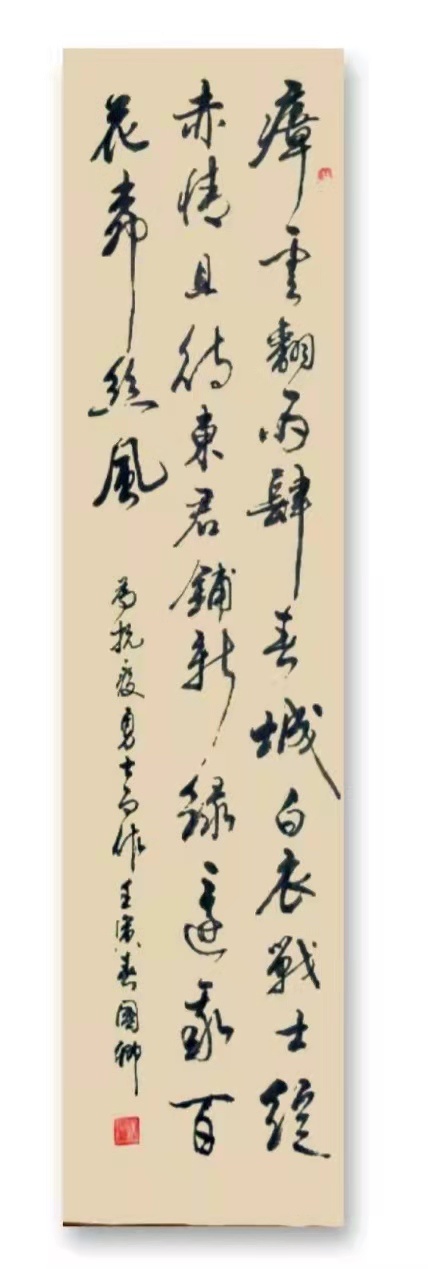 瘴雲翻雨肆春城白衣戰士綻
赤情且待東君鋪新綠百
花舞絲風
為抗疫勇士而作壬寅春國卿